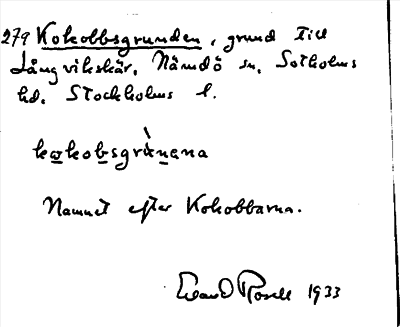 279 Kokobbsgrunden, grund till
Långvikskär, Nämdö sn, Sotholms
hd. Stockholms l.
kokobsgrànana
Namnet efter Kokobbarna.
1933